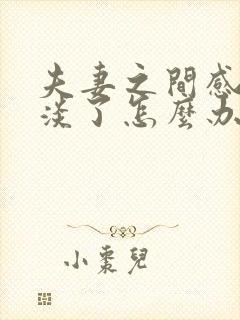 夫妻之間感
淡了怎麼办
小棗兒